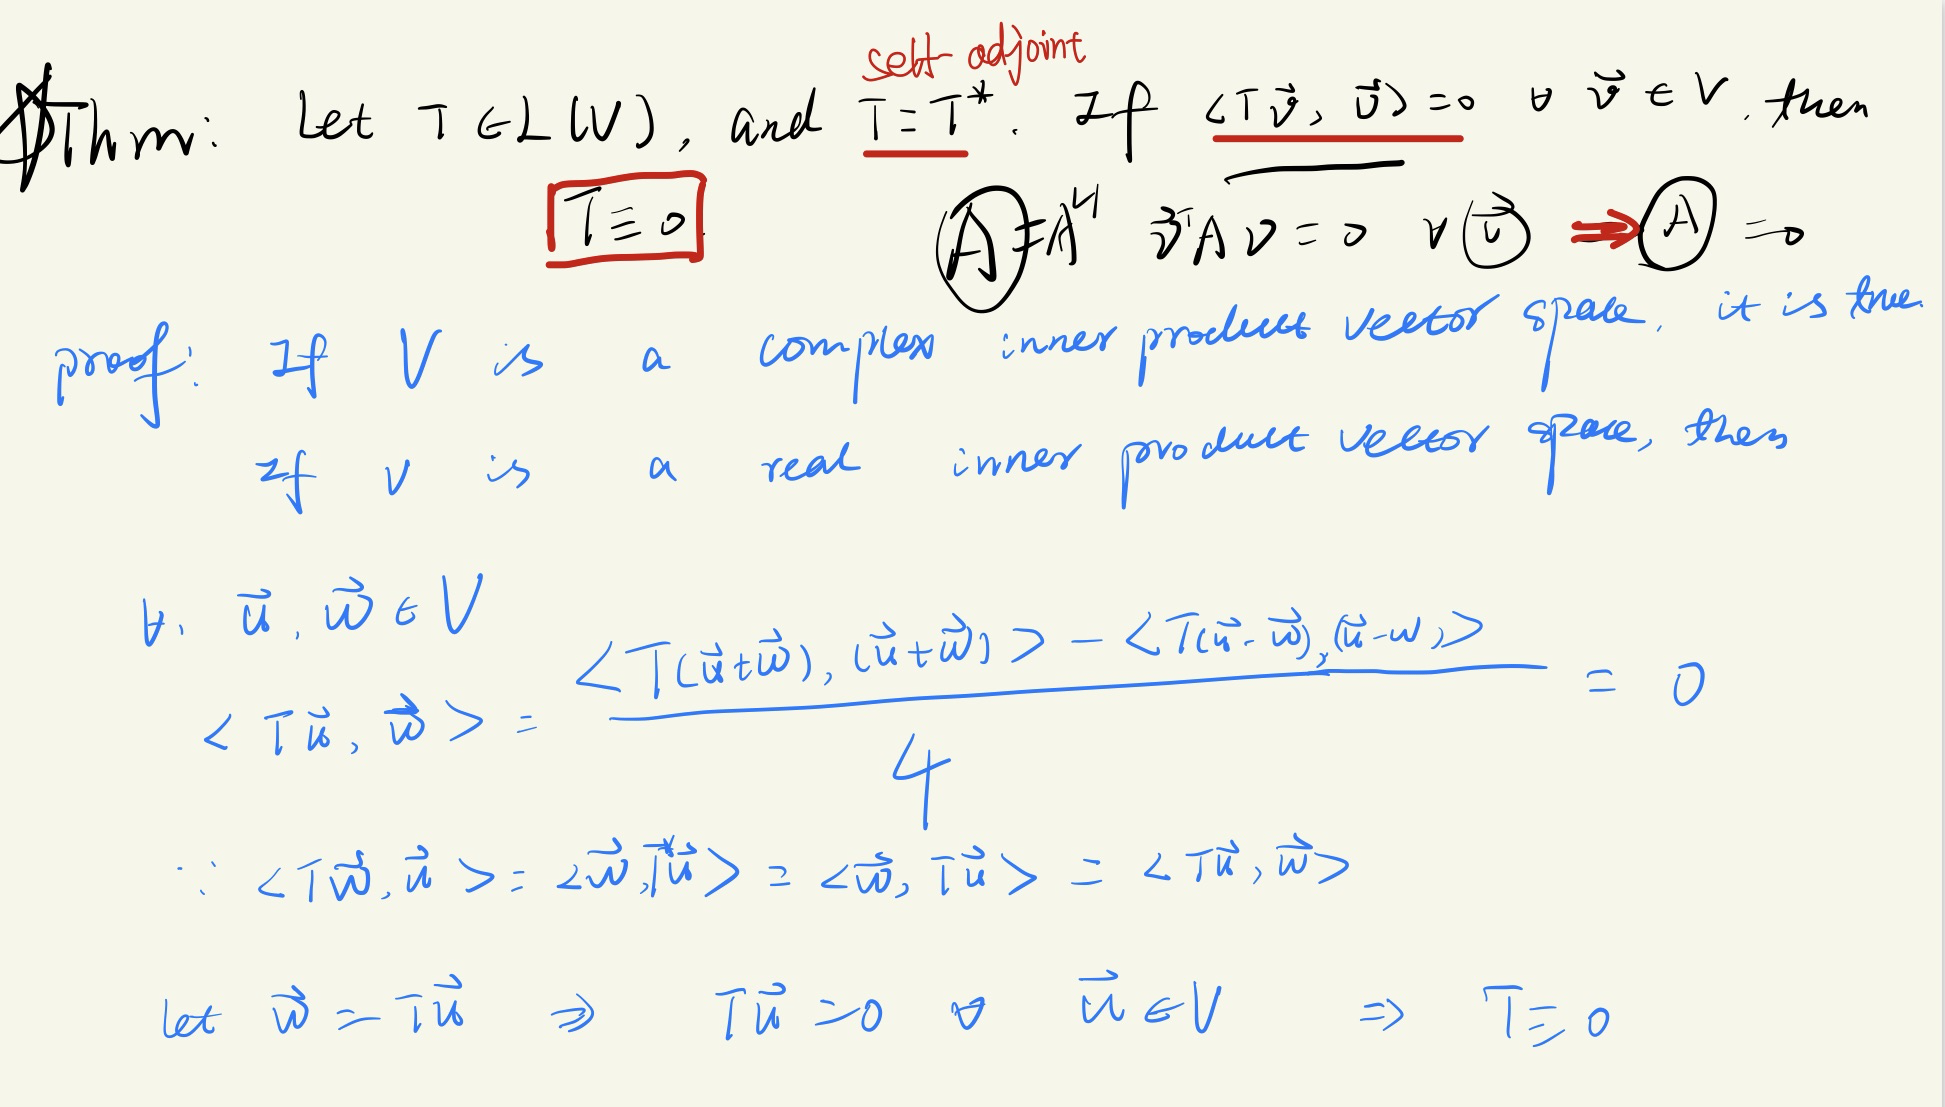 self-adjoint
Thm: Let T ∈ L(V), and T = T*. If <Tv⃗, v⃗> = 0 ∀ v⃗ ∈ V, then
T ≡ 0. A = Aᴴ v⃗ᵀAv = 0 ∀ v⃗ ⇒ A = 0
proof: If V is a complex inner product vector space, it is true.
If V is a real inner product vector space, then
∀. u⃗, w⃗ ∈ V
<T(u⃗+w⃗), (u⃗+w⃗)> - <T(u⃗-w⃗), (u⃗-w)>
<Tu⃗, w⃗> = ――― = 0
4
∵ <Tw⃗, u⃗> = <w⃗, T*u⃗> = <w⃗, Tu⃗> = <Tu⃗, w⃗>
let w⃗ = Tu⃗ ⇒ Tu⃗ = 0 ∀ u⃗ ∈ V ⇒ T ≡ 0